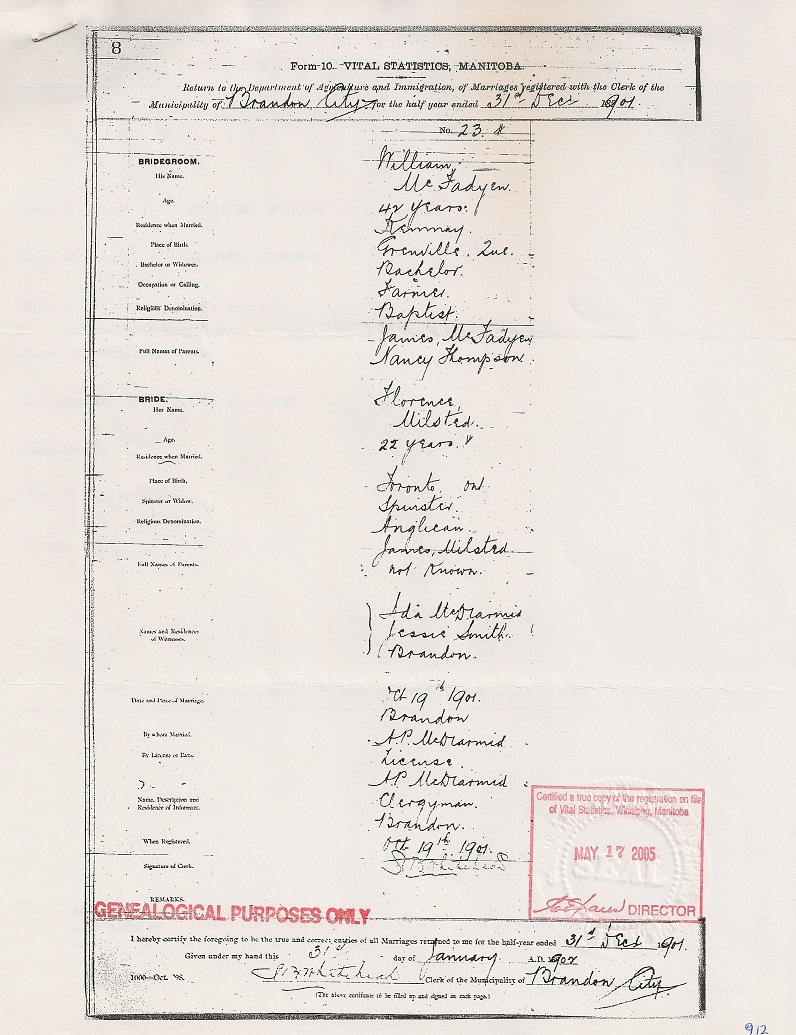 8
Form-10. VITAL STATISTICS, MANITOBA.
Return to the Department of Agriculture and Immigration, of Marriages registered with the Clerk of the
Municipality of Brandon City for the half year ended 31st Decr 1901.
No. 23.
BRIDEGROOM. William
His Name. McFadyen.
Age. 42 years.
Residence when Married. Kemnay.
Place of Birth. Grenville, Que.
Bachelor or Widower. Bachelor.
Occupation or Calling. Farmer.
Religious Denomination. Baptist.
James, McFadyen
Full Names of Parents. Nancy Thompson.
BRIDE. Florence,
Her Name. Milsted.
Age. 22 years. "
Residence when Married.
Place of Birth, Toronto Ont
Spinster or Widow. Spinster.
Religious Denomination. Anglican.
James, Milsted.
Full Names of Parents. not Known.
Ida McDiarmid
Names and Residences Jessie Smith.
of Witnesses. Brandon.
Date and Place of Marriage. Oct 19th 1901.
Brandon
By whom Married. A.P. McDiarmid.
By License or Banns. License.
A.P. McDiarmid
Name, Description and Clergyman.
Residence of Informant. Brandon.
When Registered. Oct 19th 1901.
Signature of Clerk.
REMARKS.
Certified a true copy of the registration on file
of Vital Statistics, Winnipeg, Manitoba
MAY 17 2005
SEAL
DIRECTOR
GENEALOGICAL PURPOSES ONLY
I hereby certify the foregoing to be the true and correct entries of all Marriages returned to me for the half-year ended 31st Decr 1901.
Given under my hand this 31st day of January A.D. 1902
1000—Oct. '98. Clerk of the Municipality of Brandon City
(The above certificate to be filled up and signed on each page.)
912